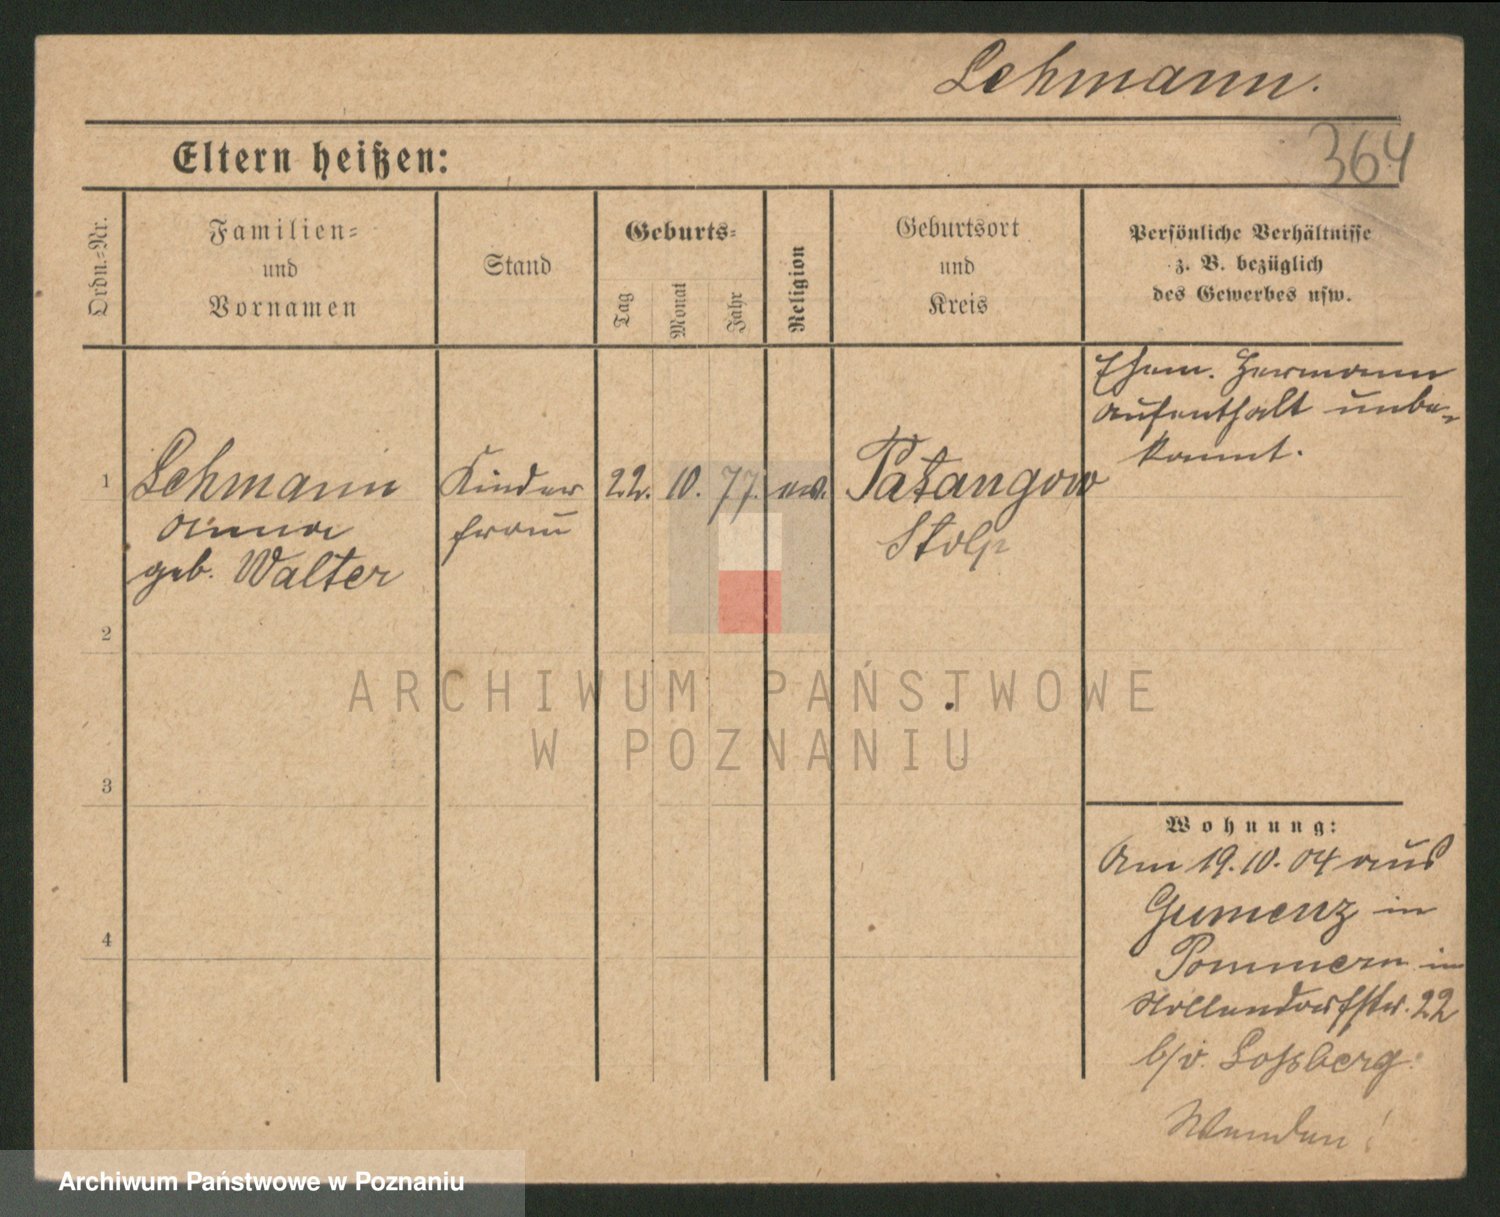 Lehmann.
364
Eltern heißen:
Ordn.=Nr.
Familien=
und
Vornamen
Stand
Geburts=
Tag
Monat
Jahr
Religion
Geburtsort
und
Kreis
Persönliche Verhältnisse
z. B. bezüglich
des Gewerbes usw.
Ehem. Hermann
Aufenthalt unbe-
kannt.
1 Lehmann Kinder 22. 10. 77. ev. Patangow
Anna frau Stolp
geb. Walter
2
ARCHIWUM PAŃSTWOWE
W POZNANIU
3
Wohnung:
Am 19.10.04 aus
Gumenz in
Pommern in
Hollendorfstr. 22
b/v. Lossberg.
Wenden!
4
Archiwum Państwowe w Poznaniu